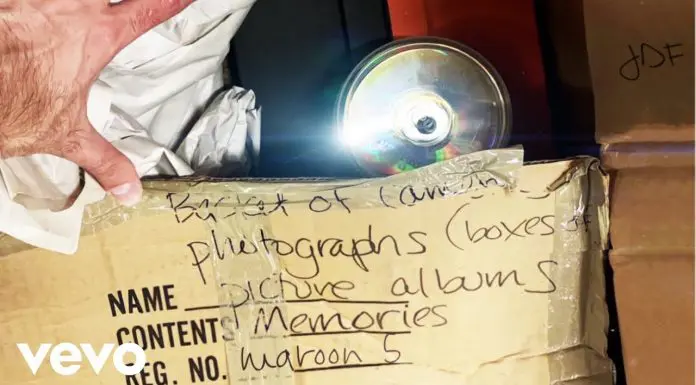 JDF
Basket of
photographs (boxes of
picture albums
NAME
CONTENTS Memories
REG. NO. maroon 5
vevo